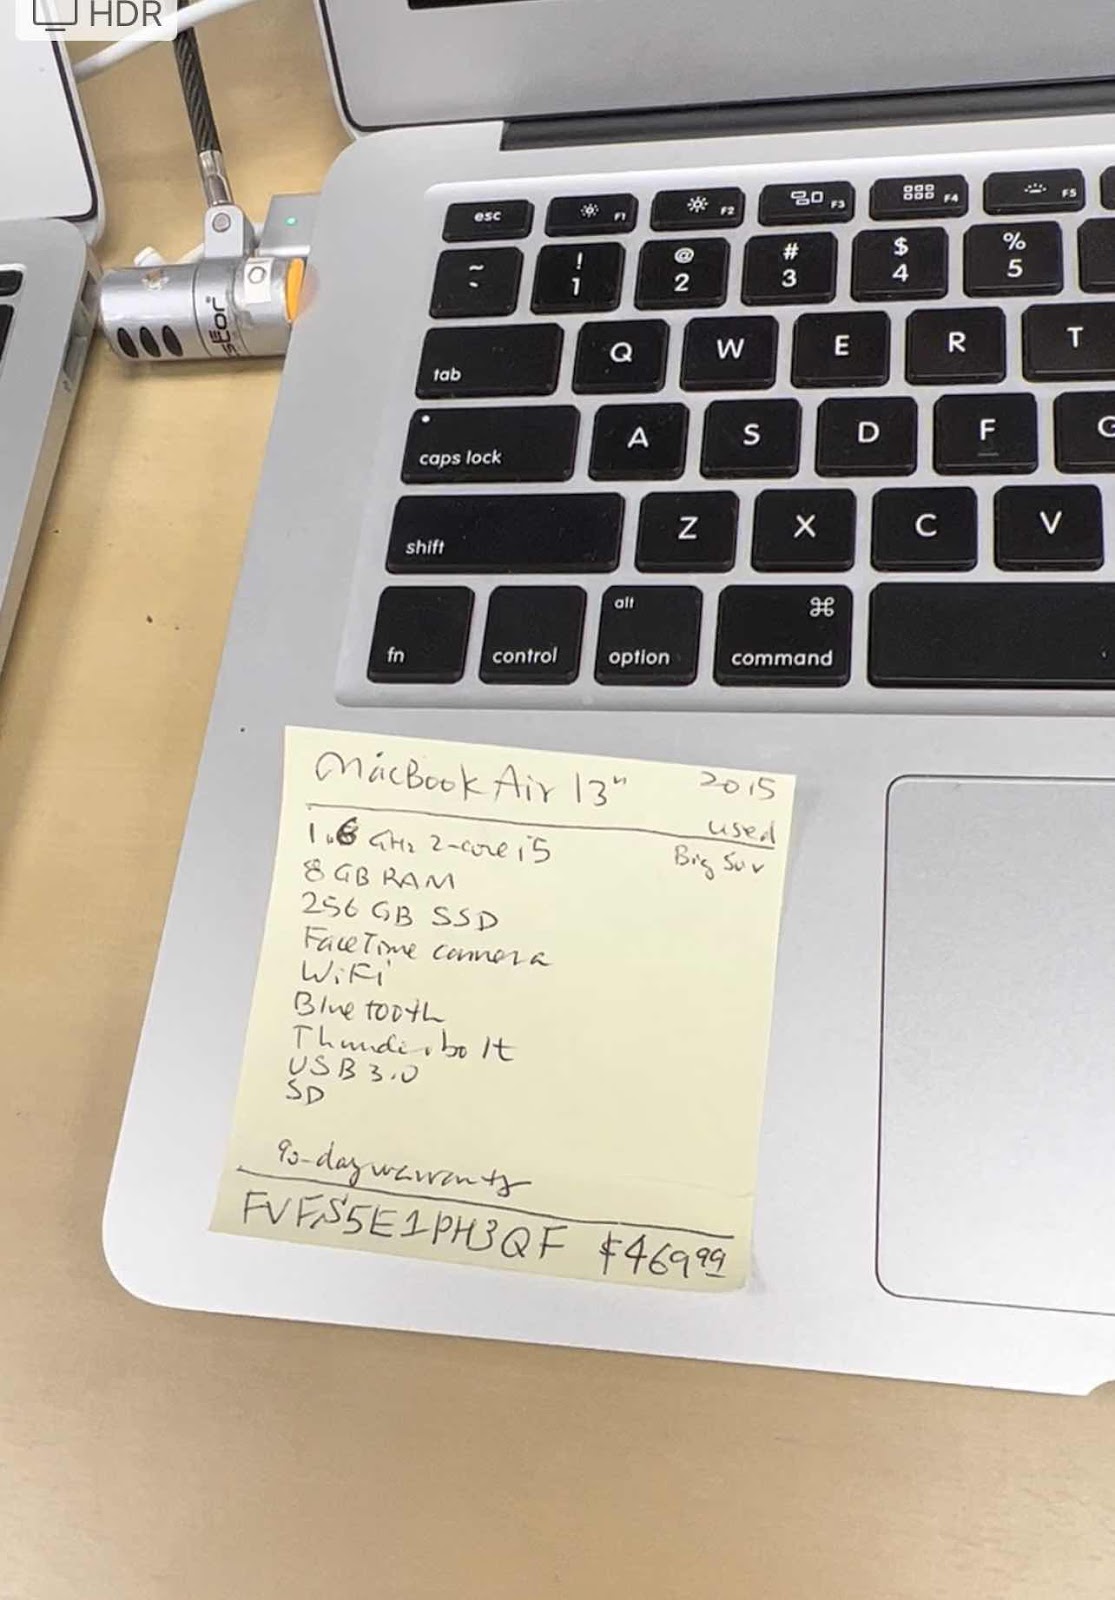 HDR
esc F1 F2 F3 F4 F5
~ ` ! 1 @ 2 # 3 $ 4 % 5
tab Q W E R T
caps lock A S D F G
shift Z X C V
fn control alt option ⌘ command
MacBook Air 13" 2015
used
1.6 GHz 2-core i5 Big Sur
8 GB RAM
256 GB SSD
FaceTime camera
WiFi
Bluetooth
Thunderbolt
USB 3.0
SD
90-day warranty
FVFS5E1PH3QF $469.99